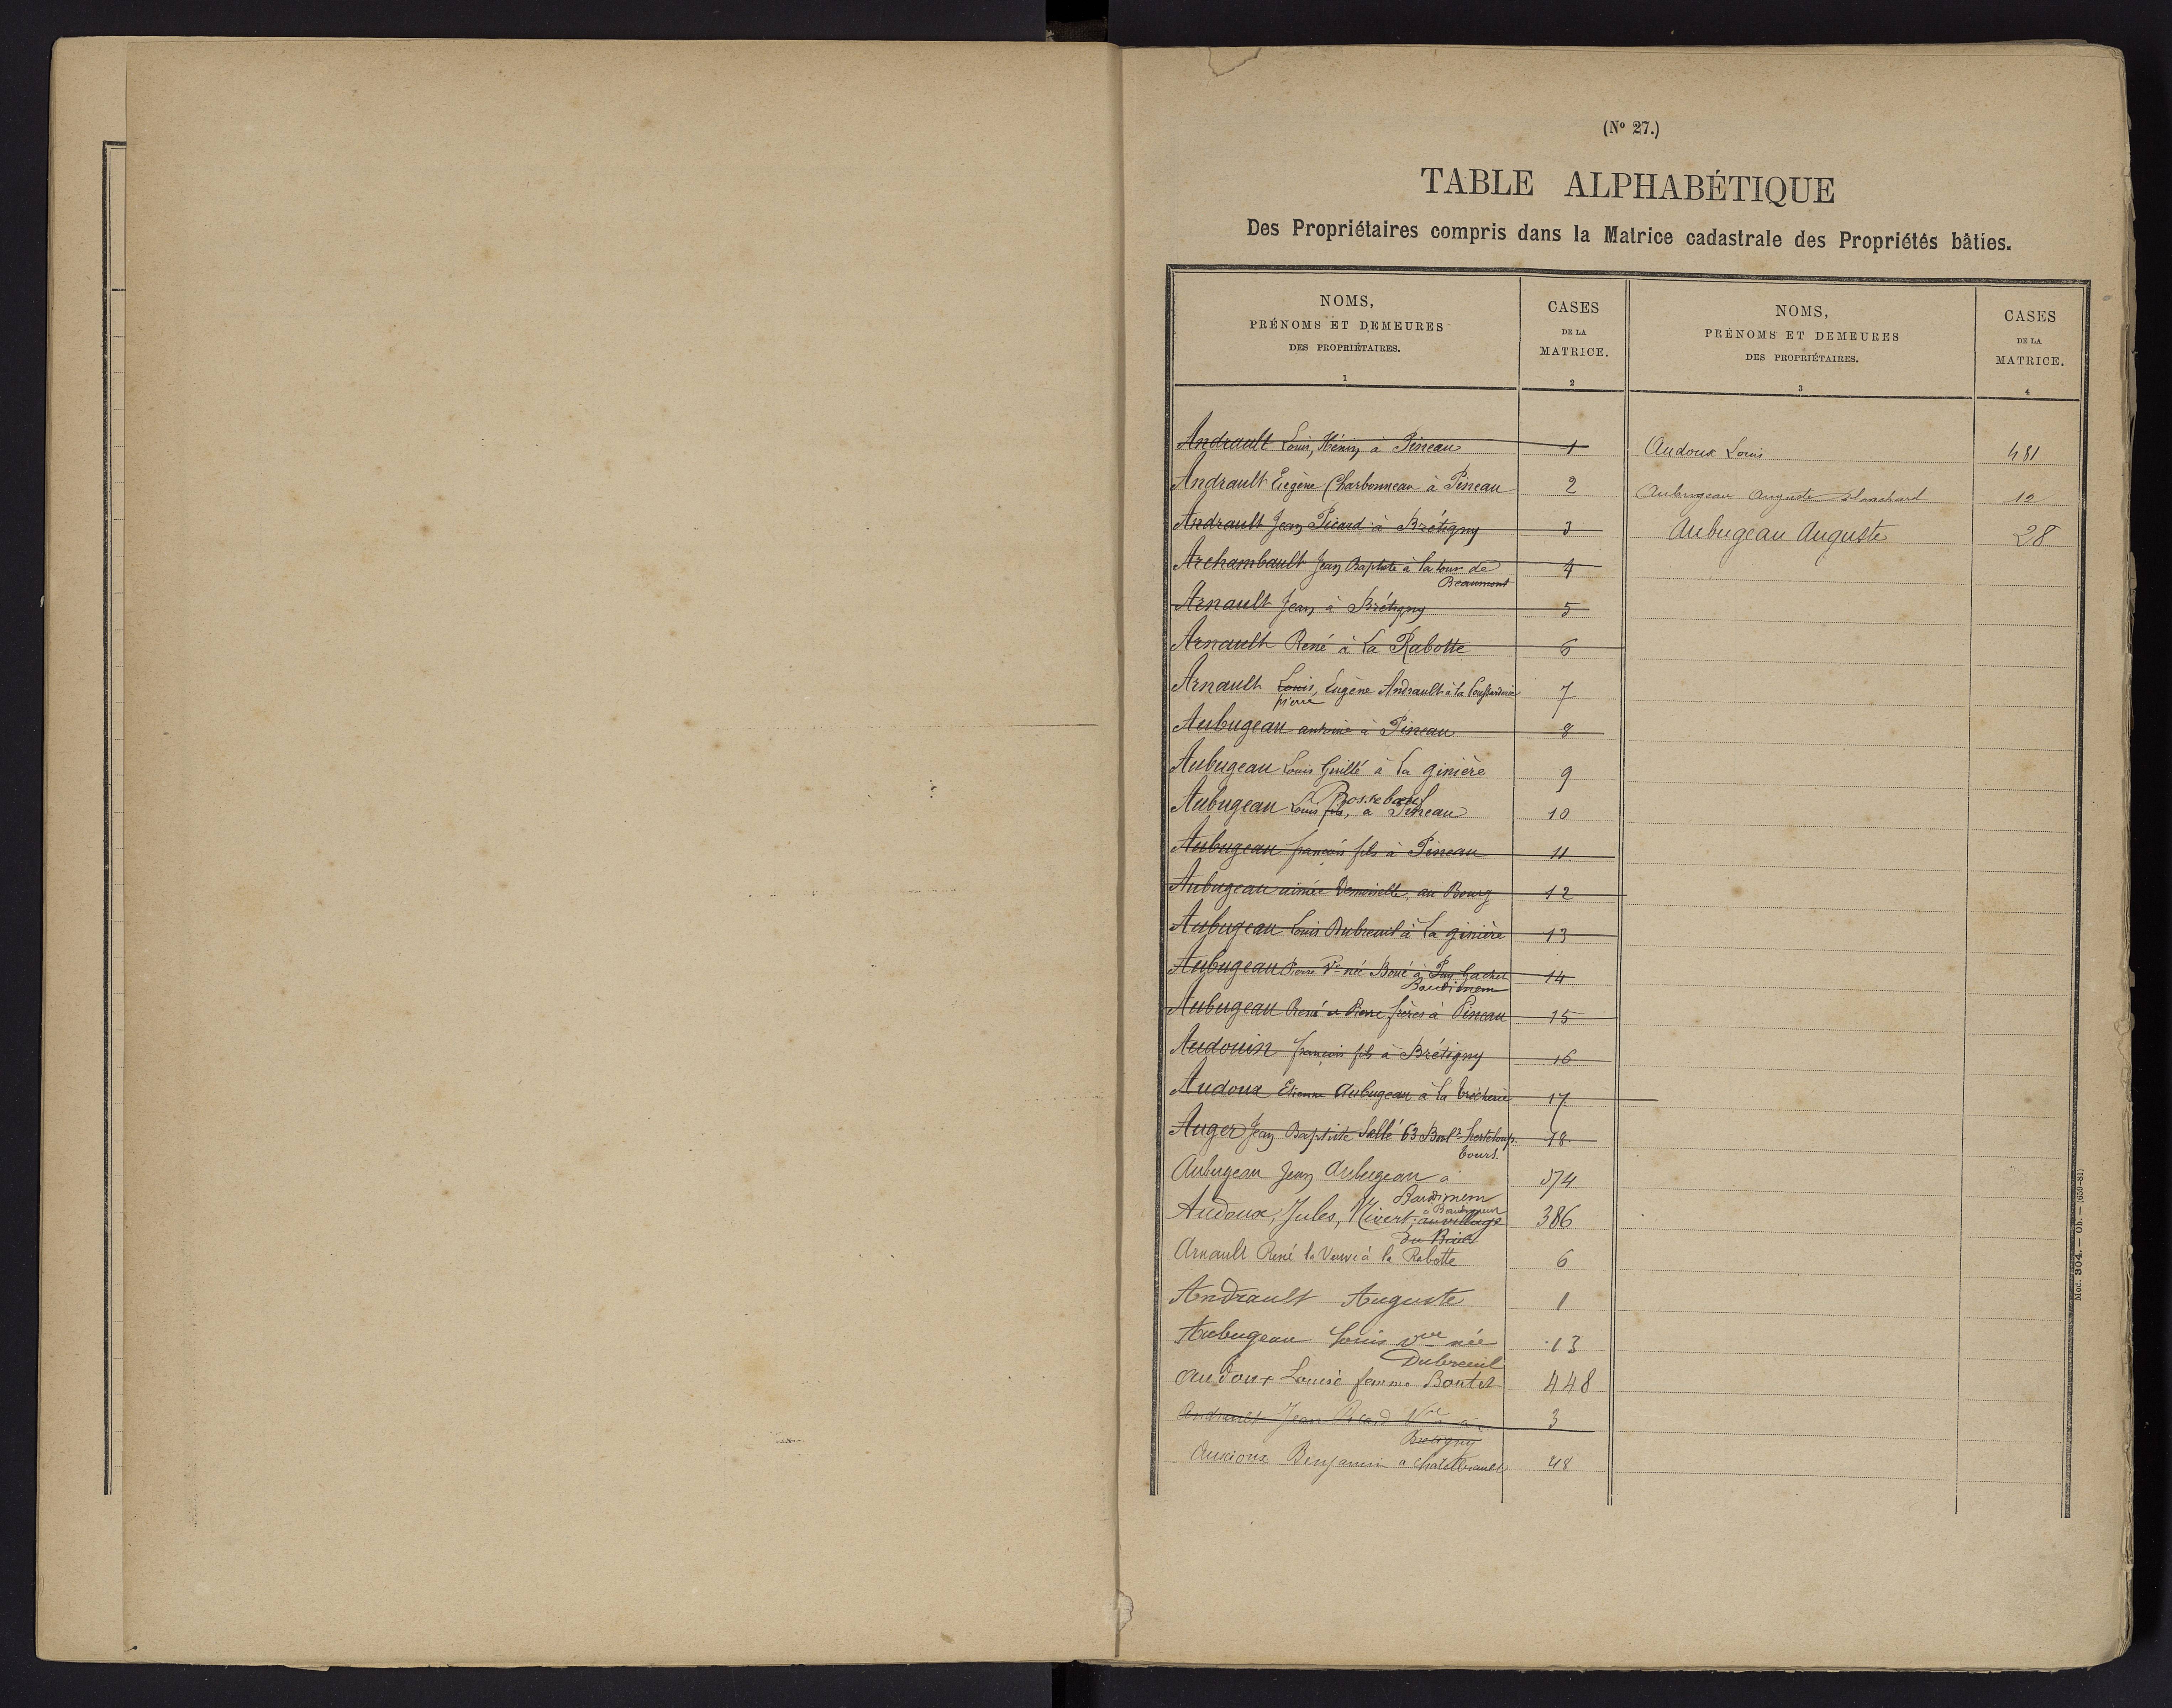 (Nº 27.)
TABLE ALPHABÉTIQUE
Des Propriétaires compris dans la Matrice cadastrale des Propriétés bâties.
NOMS,
PRÉNOMS ET DEMEURES
DES PROPRIÉTAIRES.
1
CASES
DE LA
MATRICE.
2
NOMS,
PRÉNOMS ET DEMEURES
DES PROPRIÉTAIRES.
3
CASES
DE LA
MATRICE.
4
Andrault Louis, Hénin, à Pineau 1
Andrault Eugène Charbonneau à Pineau 2
Andrault Jean Picard à Brétigny 3
Archambault Jean Baptiste à la tour de 4
Beaumont
Arnault Jean à Brétigny 5
Arnault René à La Rabotte 6
Arnault Louis, Eugène Andrault à la 7
pierre
Aubugeau antoine à Pineau 8
Aubugeau Louis Guillé à La ginière 9
Bosseboeuf
Aubugeau Louis fils, à Pineau 10
Aubugeau françois fils à Pineau 11
Aubugeau aimée Demoiselle, au Bourg 12
Aubugeau Louis Dubreuil à La ginière 13
Aubugeau Pierre Ve née Boué à Puy Gachet 14
Baudiment
Aubugeau René et Pierre frères à Pineau 15
Audouin françois fils à Brétigny 16
Audoux Etienne Aubugeau à La tricherie 17
Auger Jean Baptiste Sallé 63 Boulᵈ heurteloup 18
tours.
Aubugeau Jean Aubugeau à 374
Baudiment
à Baudiment
Audoux, Jules, Nivert, au village 386
Du
Arnault René la Veuve à la Rabotte 6
Andrault Auguste 1
Aubugeau Louis vve née 13
Dubreuil
Audoux Louise femme Boutet 448
Andrault Jean Picard Vve à 3
Bretigny
Auxioux Benjamin à Chatellerault 48
Audoux Louis 481
Aubugeau Auguste Blanchard 12
Aubugeau Auguste 28
Mod. 304. — Ob. — (659-81)